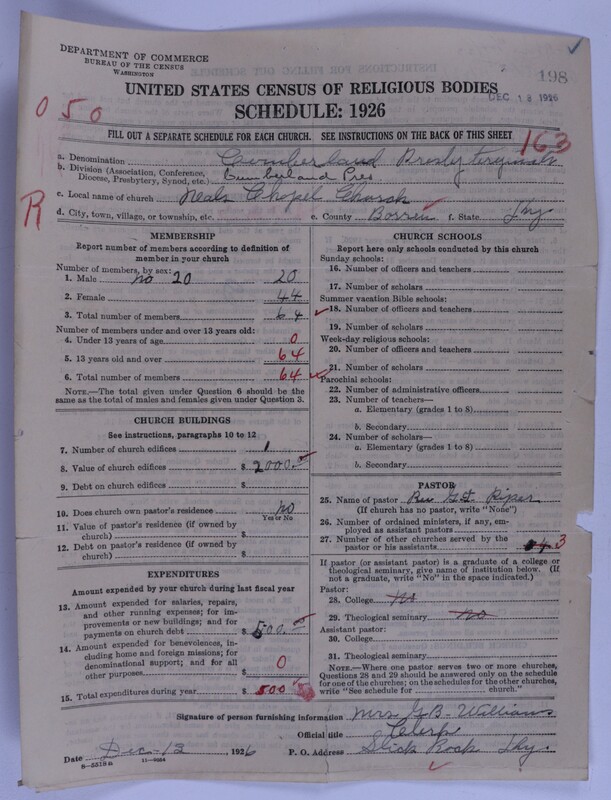 DEPARTMENT OF COMMERCE
BUREAU OF THE CENSUS
WASHINGTON
198
UNITED STATES CENSUS OF RELIGIOUS BODIES
DEC 13 1926
SCHEDULE: 1926
050
FILL OUT A SEPARATE SCHEDULE FOR EACH CHURCH. SEE INSTRUCTIONS ON THE BACK OF THIS SHEET
163
a. Denomination Cumberland Presbyterians
b. Division (Association, Conference, Diocese, Presbytery, Synod, etc.) Cumberland Pres
R
c. Local name of church Neals Chapel Church
d. City, town, village, or township, etc. e. County Barren f. State Ky
MEMBERSHIP
Report number of members according to definition of
member in your church
Number of members, by sex:
1. Male no 20 20
2. Female 44
3. Total number of members 64
Number of members under and over 13 years old:
4. Under 13 years of age 0
5. 13 years old and over 64
6. Total number of members 64
NOTE.—The total given under Question 6 should be
same as the total of males and females given under Question 3.
CHURCH BUILDINGS
See instructions, paragraphs 10 to 12
7. Number of church edifices 1
8. Value of church edifices $ 2000.00
9. Debt on church edifices $
10. Does church own pastor's residence no
Yes or No
11. Value of pastor's residence (if owned by
church) $
12. Debt on pastor's residence (if owned by
church) $
EXPENDITURES
Amount expended by your church during last fiscal year
13. Amount expended for salaries, repairs,
and other running expenses; for im-
provements or new buildings; and for
payments on church debt $ 500.
14. Amount expended for benevolences, in-
cluding home and foreign missions; for
denominational support; and for all
other purposes $ 0
15. Total expenditures during year $ 500
CHURCH SCHOOLS
Report here only schools conducted by this church
Sunday schools:
16. Number of officers and teachers
17. Number of scholars
Summer vacation Bible schools:
18. Number of officers and teachers
19. Number of scholars
Week-day religious schools:
20. Number of officers and teachers
21. Number of scholars
Parochial schools:
22. Number of administrative officers
23. Number of teachers—
a. Elementary (grades 1 to 8)
b. Secondary
24. Number of scholars—
a. Elementary (grades 1 to 8)
b. Secondary
PASTOR
25. Name of pastor Rev G.T. Piper
(If church has no pastor, write "None")
26. Number of ordained ministers, if any, em-
ployed as assistant pastors
27. Number of other churches served by the
pastor or his assistants 4 3
If pastor (or assistant pastor) is a graduate of a college or
theological seminary, give name of institution below. (If
not a graduate, write "No" in the space indicated.)
Pastor:
28. College No
29. Theological seminary No
Assistant pastor:
30. College
31. Theological seminary
NOTE.—Where one pastor serves two or more churches,
Questions 28 and 29 should be answered only on the schedule
for one of the churches; on the schedules for the other churches,
write "See schedule for church."
Signature of person furnishing information Mrs G.B. Williams
Official title Clerk
Date Dec-13, 1926 P. O. Address Slick Rock Ky.
8-5518a 11-9034